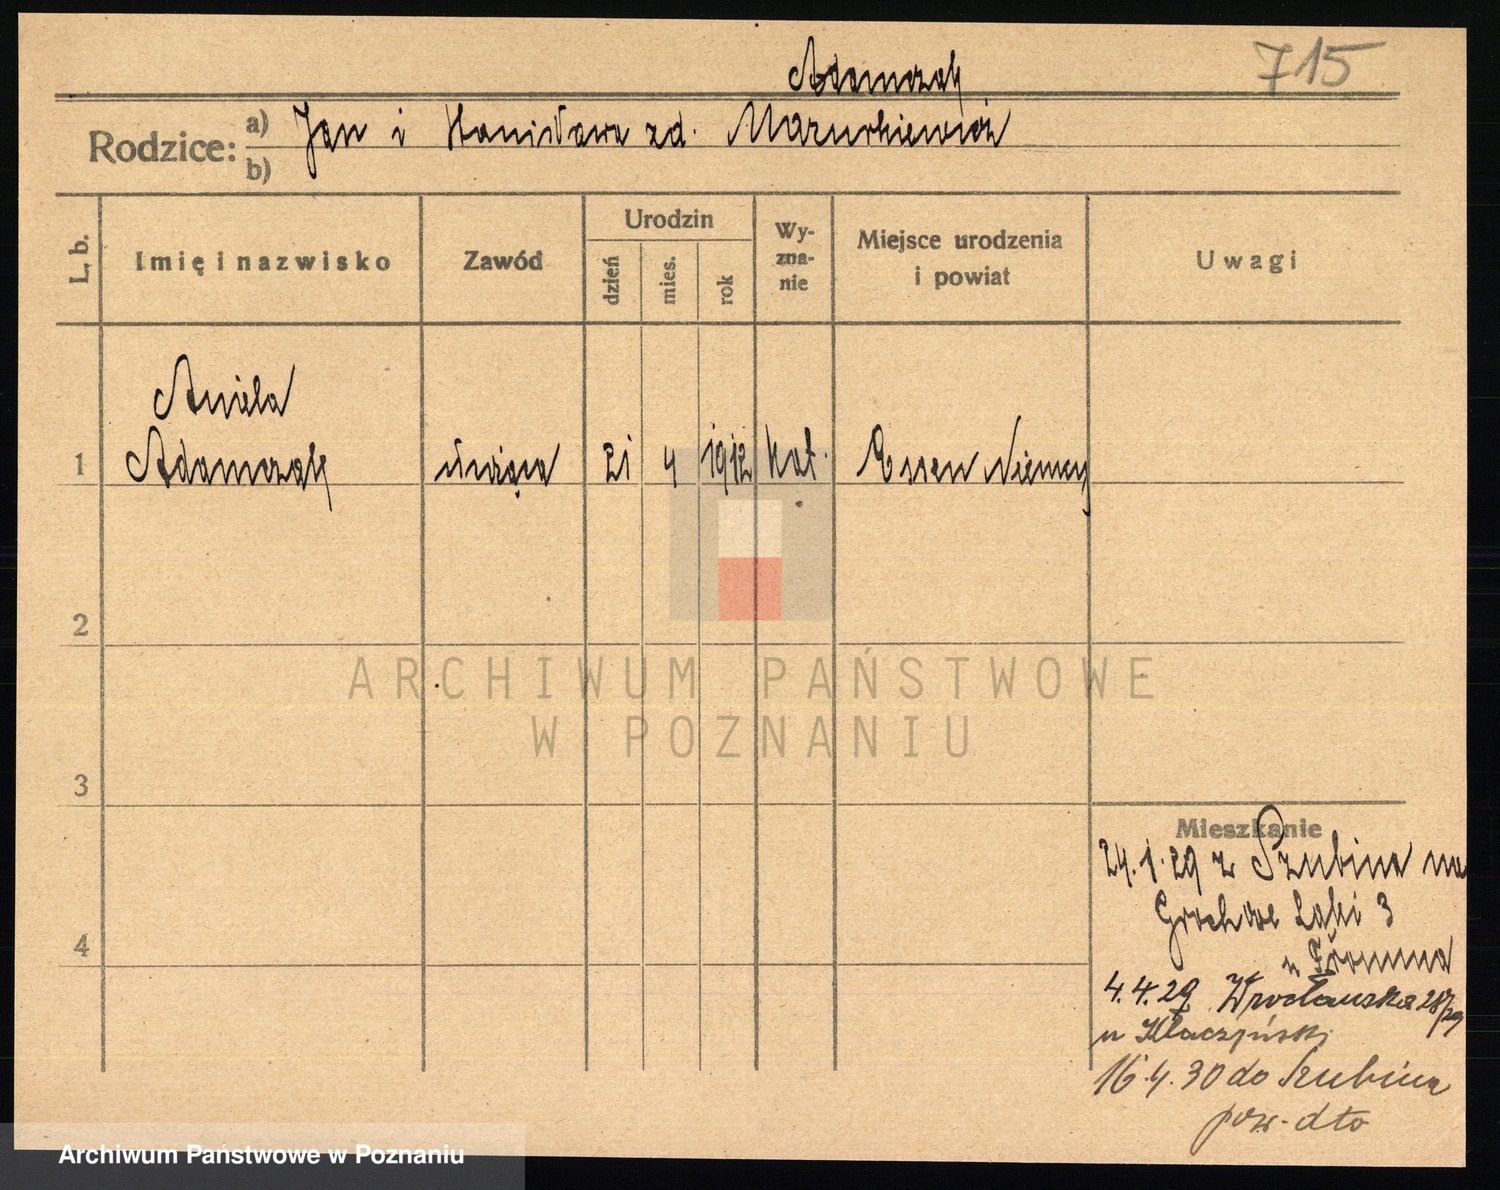 Adamczak
715
Rodzice: a) Jan i Stanisława zd. Mazurkiewicz
b)
L. b.
Imię i nazwisko
Zawód
Urodzin
dzień
mies.
rok
Wy-
zna-
nie
Miejsce urodzenia
i powiat
Uwagi
Aniela
1 Adamczak służąca 21 4 1912 kat. Essen Niemcy
2
ARCHIWUM PAŃSTWOWE
W POZNANIU
3
4
Mieszkanie
24.1.29 z Szubina na
Grochowe Łąki 3
u
4.4.29 Wrocławska
u
16.4.30 do Szubina
pow. dto
Archiwum Państwowe w Poznaniu